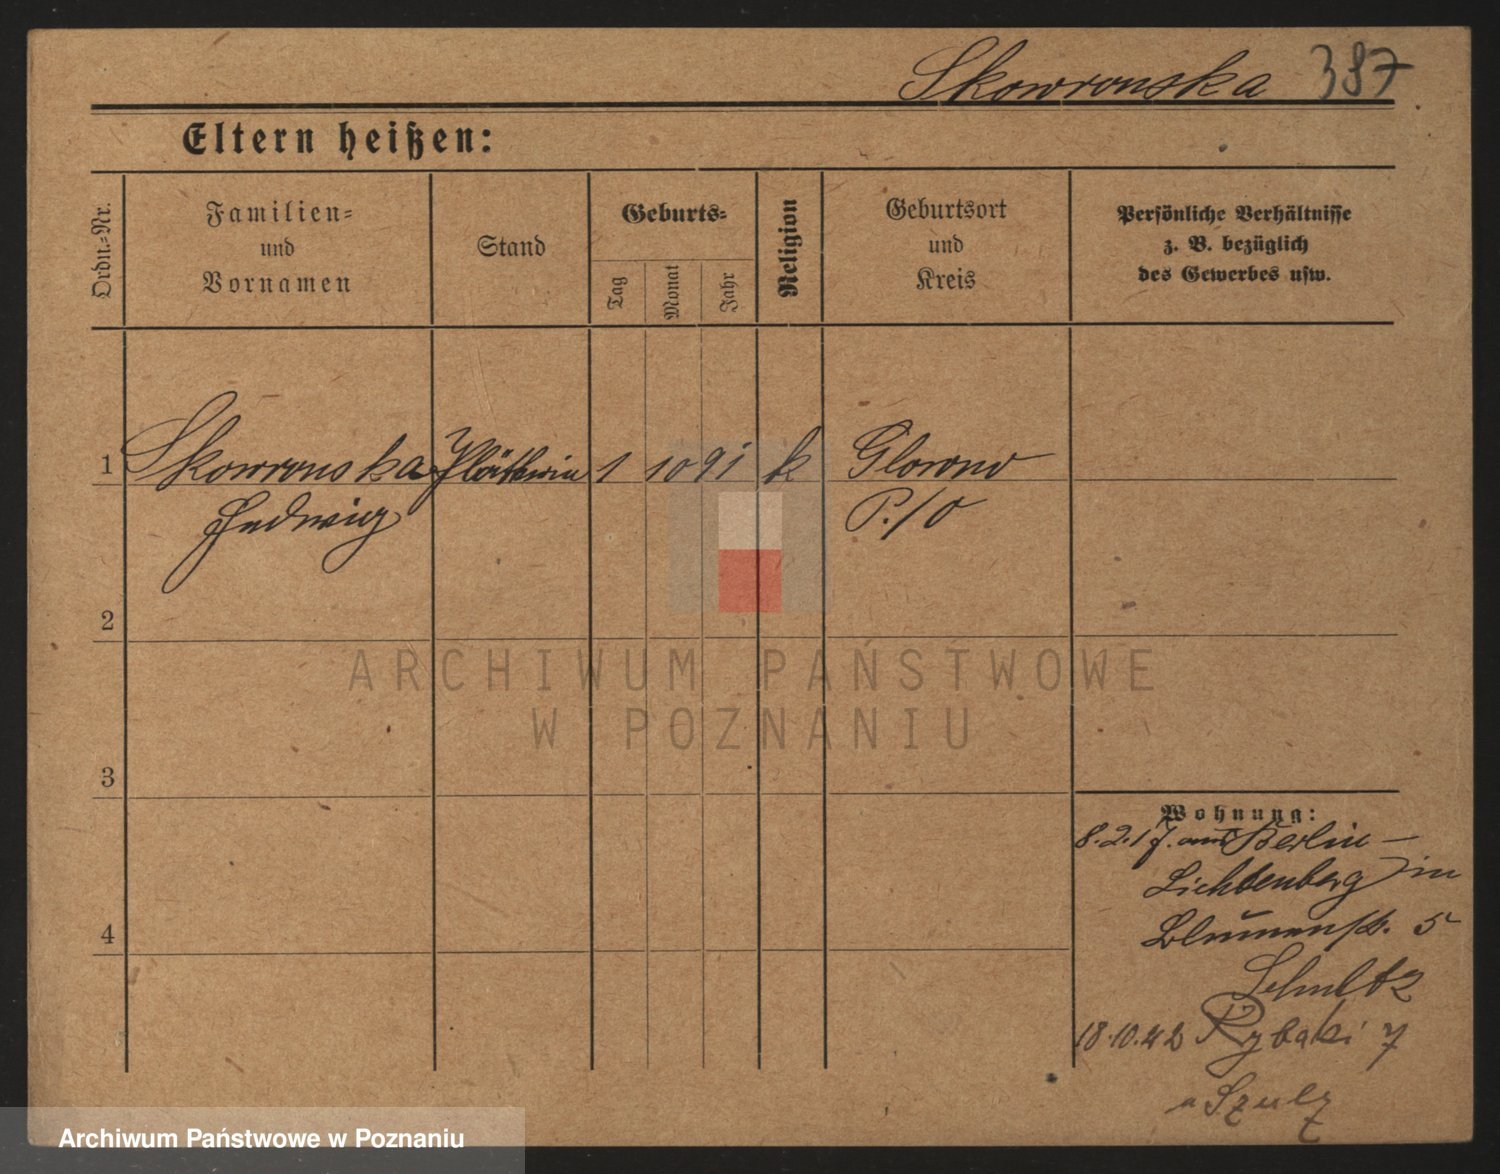 Skowronska 387
Eltern heißen:
Ordn.-Nr.
Familien-
und
Vornamen
Stand
Geburts-
Tag
Monat
Jahr
Religion
Geburtsort
und
Kreis
Persönliche Verhältnisse
z. B. bezüglich
des Gewerbes usw.
1 Skowronska Plätterin 1 10 91 k Glowno
Hedwig P./O
2
3
4
Wohnung:
8.2.17. aus Berlin-
Lichtenberg in
Blumenstr. 5
Schultz
18.10.42 Rybaki 7
Szulz
ARCHIWUM PAŃSTWOWE
W POZNANIU
Archiwum Państwowe w Poznaniu